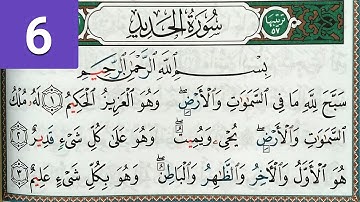 6
سُورَةُ الْحَدِيدِ
تَرْتِيبُهَا
٥٧
بِسْمِ اللَّهِ الرَّحْمَٰنِ الرَّحِيمِ
سَبَّحَ لِلَّهِ مَا فِي السَّمَاوَاتِ وَالْأَرْضِ ۖ وَهُوَ الْعَزِيزُ الْحَكِيمُ ﴿١﴾ لَهُ مُلْكُ
السَّمَاوَاتِ وَالْأَرْضِ ۖ يُحْيِي وَيُمِيتُ ۖ وَهُوَ عَلَىٰ كُلِّ شَيْءٍ قَدِيرٌ ﴿٢﴾
هُوَ الْأَوَّلُ وَالْآخِرُ وَالظَّاهِرُ وَالْبَاطِنُ ۖ وَهُوَ بِكُلِّ شَيْءٍ عَلِيمٌ ﴿٣﴾